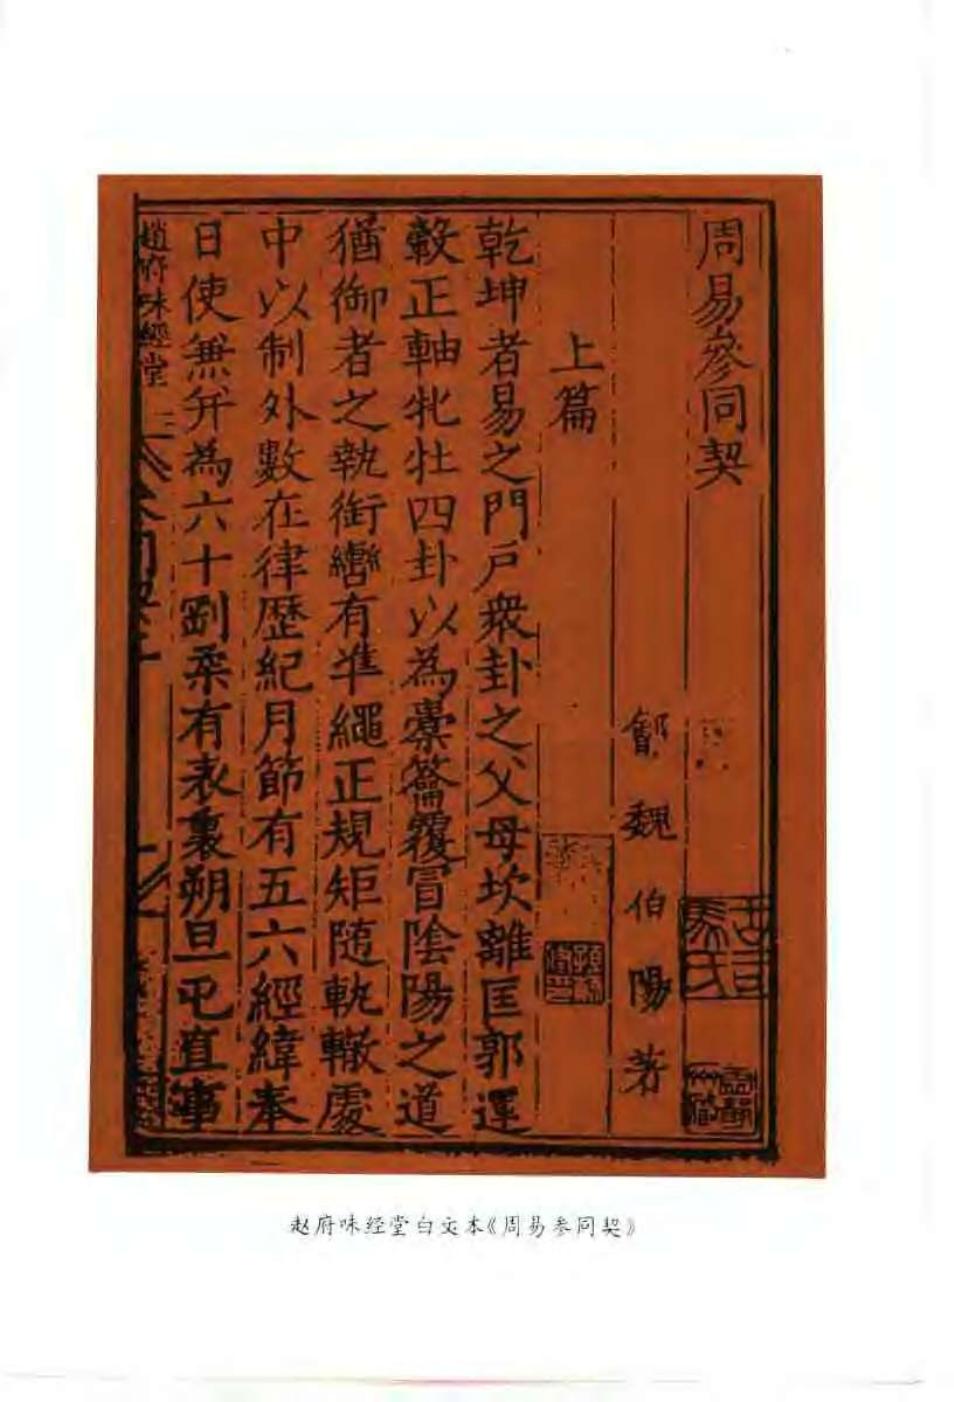 周易參同契
魏伯陽著
上篇
乾坤者易之門戶衆卦之父母坎離匡郭運
轂正軸牝牡四卦以為橐籥覆冒陰陽之道
猶御者之執銜轡有準繩正規矩隨軌轍處
中以制外數在律歷紀月節有五六經緯奉
日使兼并為六十剛柔有表裏朔旦屯直事
趙府味經堂
赵府味经堂白文本《周易参同契》